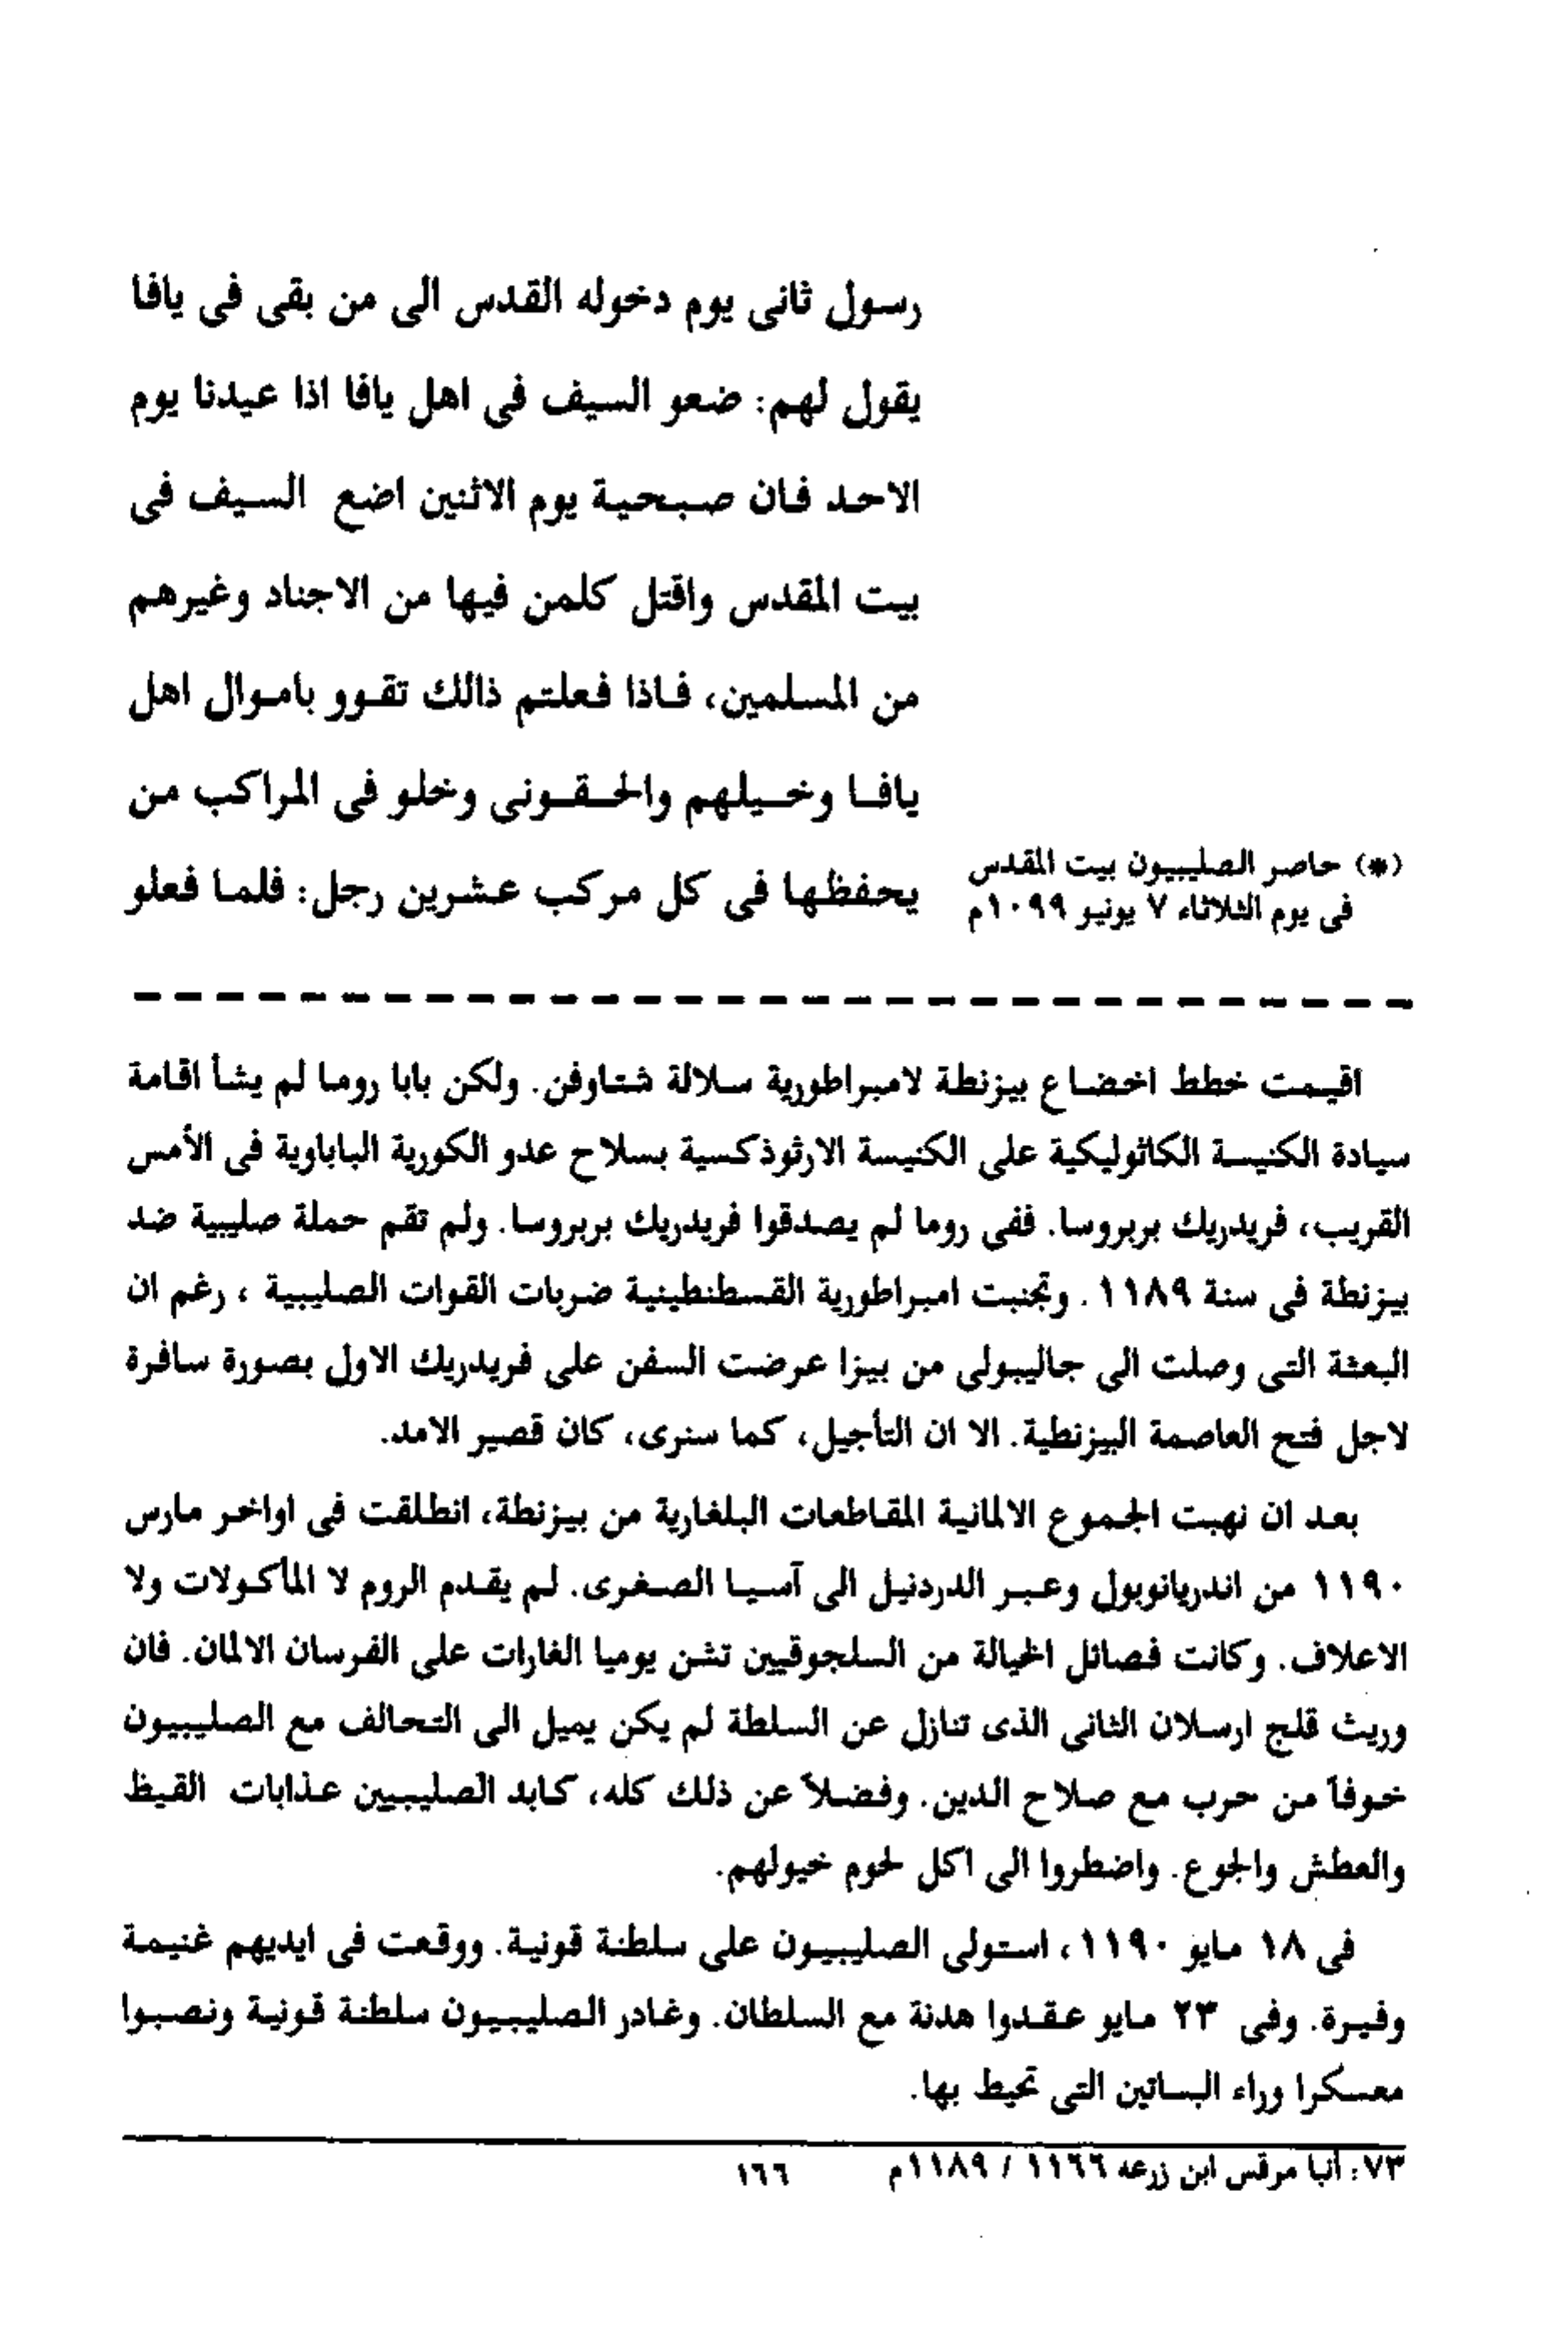 رسول ثانى يوم دخوله القدس الى من بقى فى يافا
يقول لهم: ضعو السيف فى اهل يافا اذا عيدنا يوم
الاحد فان صبحية يوم الاثنين اضع السيف فى
بيت المقدس واقتل كلمن فيها من الاجناد وغيرهم
من المسلمين، فاذا فعلتم ذالك تقوو باموال اهل
يافا وخيلهم والحقونى وخلو فى المراكب من
يحفظها فى كل مركب عشرين رجل: فلما فعلو
(*) حاصر الصليبيون بيت المقدس
فى يوم الثلاثاء ٧ يونيو ١٠٩٩م
اقيمت خطط اخضاع بيزنطة لامبراطورية سلالة شتاوفن. ولكن بابا روما لم يشأ اقامة
سيادة الكنيسة الكاثوليكية على الكنيسة الارثوذكسية بسلاح عدو الكورية الباباوية فى الأمس
القريب، فريدريك بربروسا. ففى روما لم يصدقوا فريدريك بربروسا. ولم تقم حملة صليبية ضد
بيزنطة فى سنة ١١٨٩. وتجنبت امبراطورية القسطنطينية ضربات القوات الصليبية ، رغم ان
البعثة التى وصلت الى جاليبولى من بيزا عرضت السفن على فريدريك الاول بصورة سافرة
لاجل فتح العاصمة البيزنطية. الا ان التأجيل، كما سنرى، كان قصير الامد.
بعد ان نهبت الجموع الالمانية المقاطعات البلغارية من بيزنطة، انطلقت فى اواخر مارس
١١٩٠ من اندريانوبول وعبر الدردنيل الى آسيا الصغرى. لم يقدم الروم لا المأكولات ولا
الاعلاف. وكانت فصائل الخيالة من السلجوقيين تشن يوميا الغارات على الفرسان الالمان. فان
وريث قلج ارسلان الثانى الذى تنازل عن السلطة لم يكن يميل الى التحالف مع الصليبيون
خوفاً من حرب مع صلاح الدين. وفضلاً عن ذلك كله، كابد الصليبيين عذابات القيظ
والعطش والجوع. واضطروا الى اكل لحوم خيولهم.
فى ١٨ مايو ١١٩٠، استولى الصليبيون على سلطنة قونية. ووقعت فى ايديهم غنيمة
وفيرة. وفى ٢٣ مايو عقدوا هدنة مع السلطان. وغادر الصليبيون سلطنة قونية ونصبوا
معسكرا وراء البساتين التى تحيط بها.
٧٣: أنبا مرقس ابن زرعه ١١٦٦ / ١١٨٩م ١٦٦